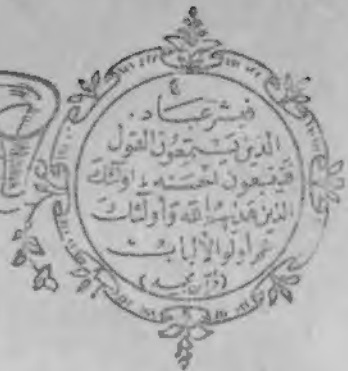 فبشر عباد.
الذين يستمعون القول
فيتبعون احسنه اولئك
الذين هديهم الله و اولئك
هم اولو الألباب
(قرآن مجید)